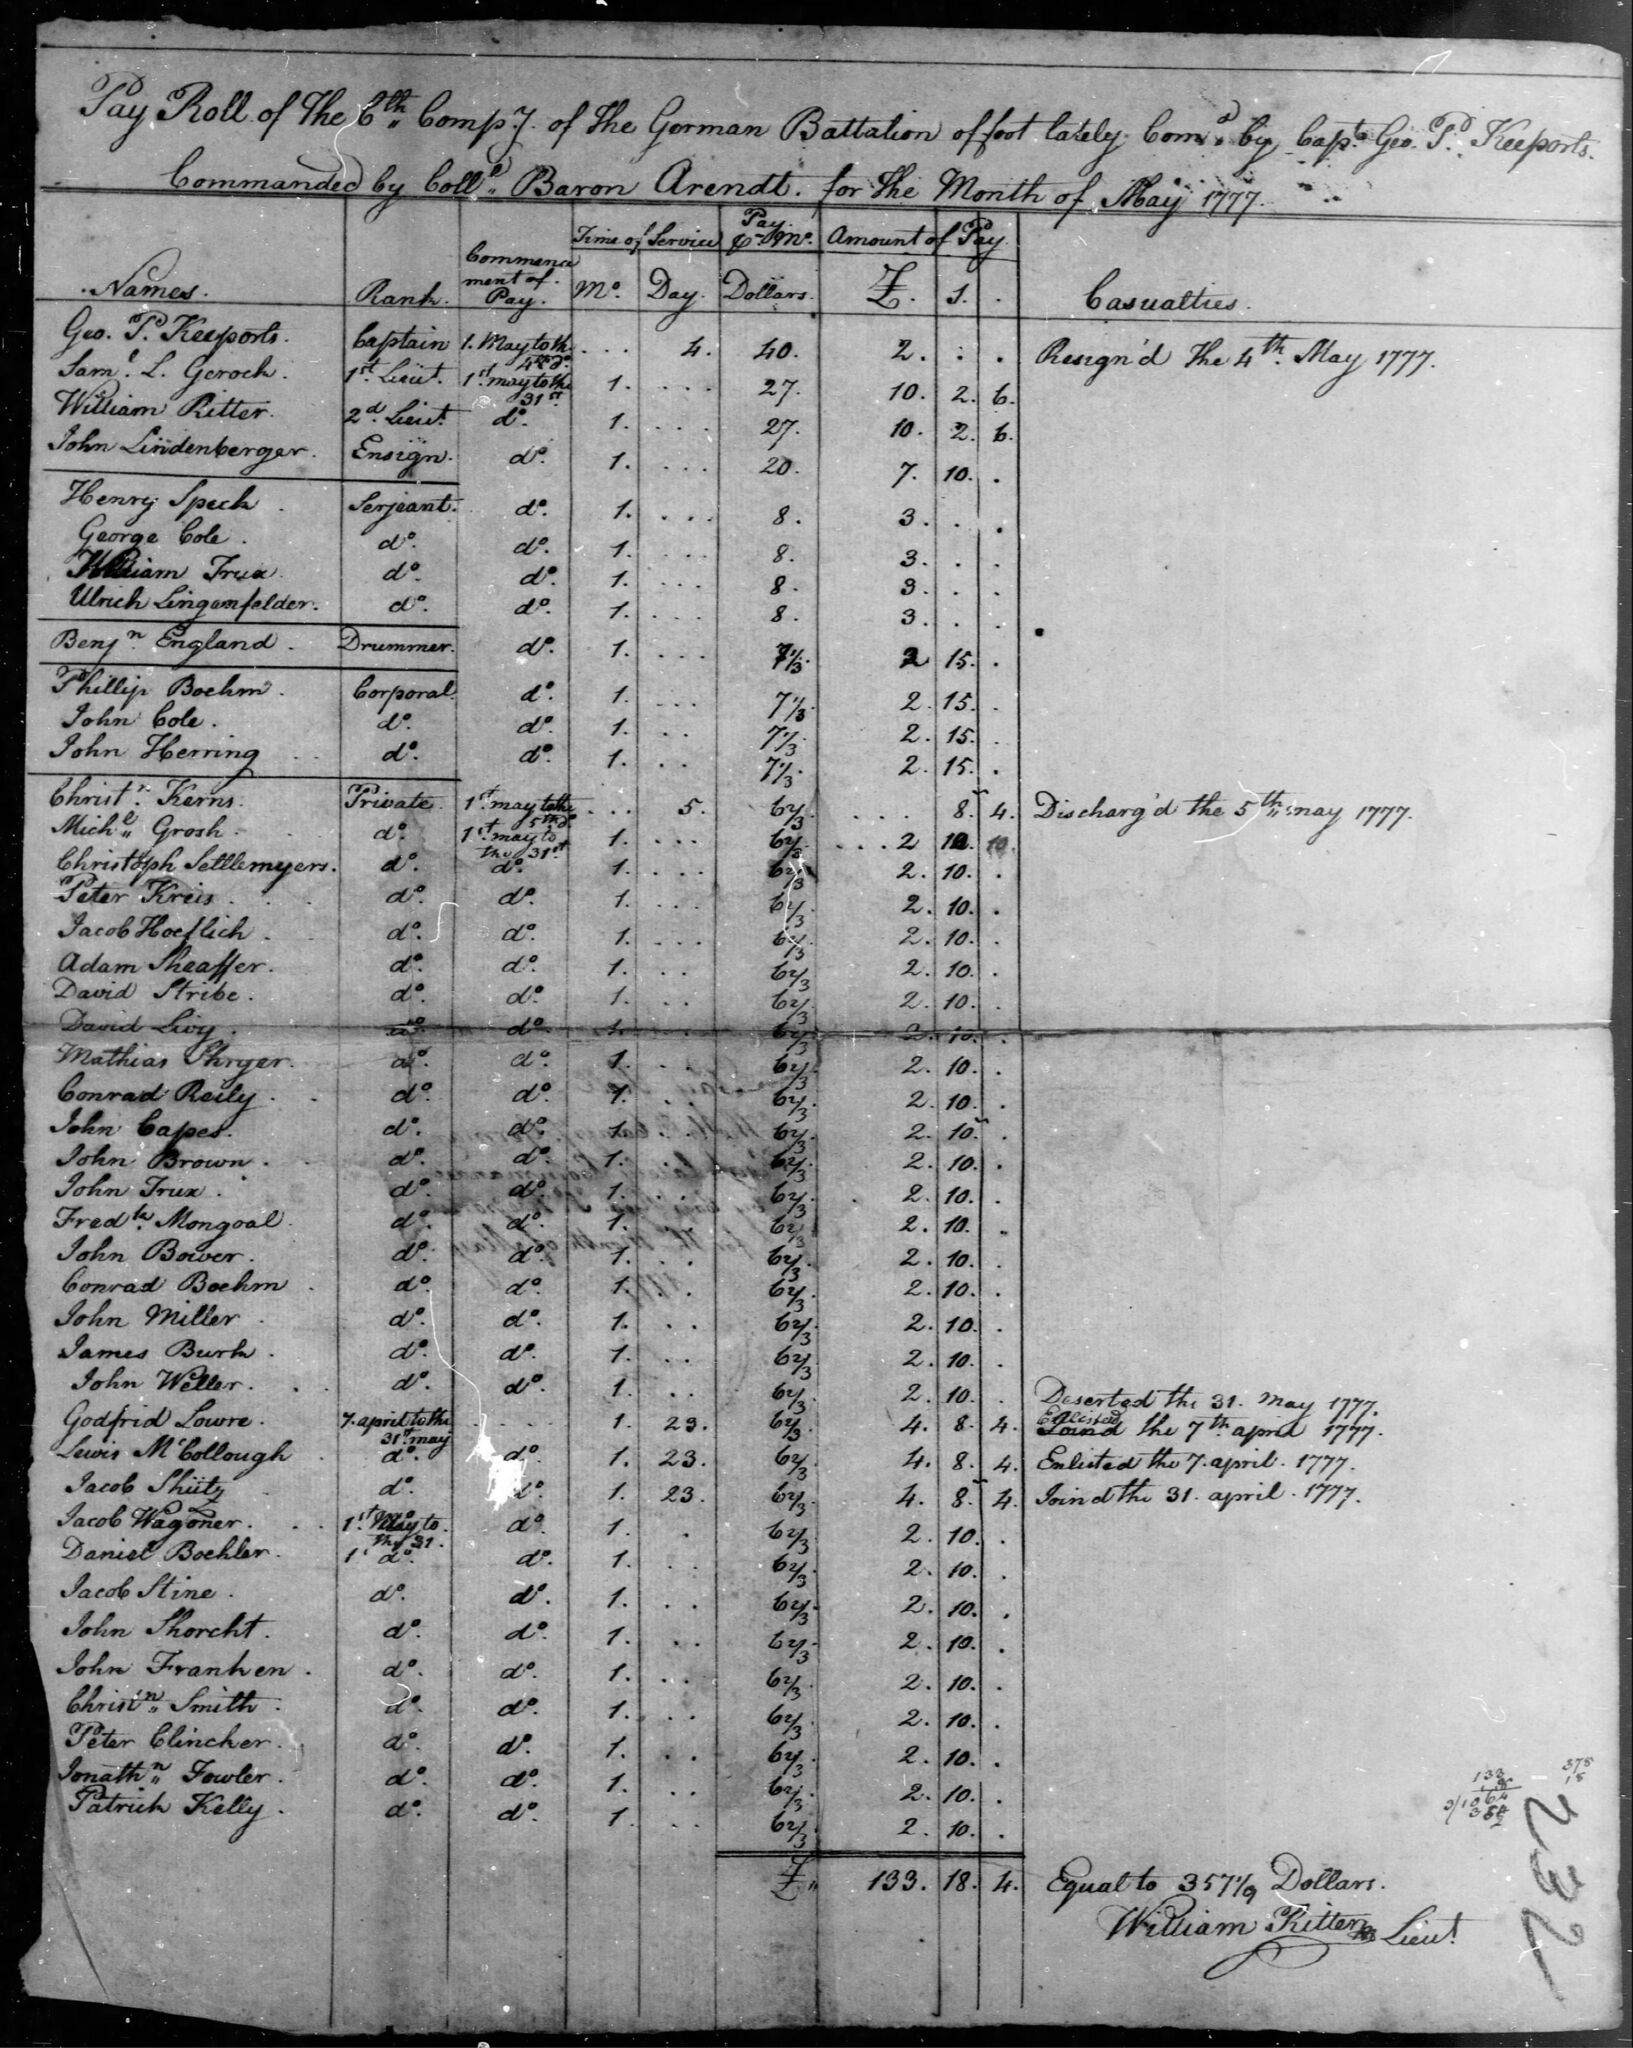 Pay Roll of the 6th Compy. of the German Battalion of foot lately Comd. by Capt. Geo. P. Keeports.
Commanded by Coll. Baron Arendt. for the Month of May 1777.
Names. Rank. Commencement of Pay. Time of Service Mo. Day. Pay pr. Mo. Dollars. Amount of Pay £. s. . Casualties.
Geo. P. Keeports. Captain 1. May to th. 4th do. ... 4. 40. 2. . . Resign'd the 4th. May 1777.
Saml. L. Gerock. 1st. Lieut. 1st. may to the 31st. 1. ... 27. 10. 2. 6.
William Ritter. 2d. Lieut. do. 1. ... 27. 10. 2. 6.
John Lindenberger. Ensign. do. 1. ... 20. 7. 10. .
Henry Speck. Serjeant. do. 1. ... 8. 3. . .
George Cole. do. do. 1. ... 8. 3. . .
William Trux. do. do. 1. ... 8. 3. . .
Ulrich Lingenfelder. do. do. 1. ... 8. 3. . .
Benjn. England. Drummer. do. 1. ... 7 1/3. 2 15. .
Phillip Boehm. Corporal. do. 1. ... 7 1/3. 2. 15. .
John Cole. do. do. 1. .. 7 1/3. 2. 15. .
John Herring do. do. 1. .. 7 1/3. 2. 15. .
Christn. Kerns. Private. 1st. may to the 5th do. ... 5. 6 2/3 .... 8. 4. Discharg'd the 5th may 1777.
Michl. Grosh. do. 1st. may to the 31st. 1. ... 6 2/3. ... 2 10. 10.
Christoph Settlemyers. do. do. 1. ... 6 2/3 2. 10. .
Peter Kreis. do. do. 1. ... 6 2/3. 2. 10. .
Jacob Hoeflich. do. do. 1. ... 6 2/3. 2. 10. .
Adam Sheaffer. do. do. 1. .. 6 2/3 2. 10. .
David Stribe. do. do. 1. .. 6 2/3. 2. 10. .
David Livy. do. do. 1. .. 6 2/3. 2. 10. .
Mathias Shryer. do. do. 1. .. 6 2/3. 2. 10. .
Conrad Reily. do. do. 1. .. 6 2/3. 2. 10. .
John Capes. do. do. 1. .. 6 2/3. 2. 10. .
John Brown. do. do. 1. .. 6 2/3. 2. 10. .
John Trux. do. do. 1. .. 6 2/3. 2. 10. .
Fredk. Mongoal. do. do. 1. .. 6 2/3. 2. 10. .
John Bower. do. do. 1. .. 6 2/3. 2. 10. .
Conrad Boehm. do. do. 1. .. 6 2/3. 2. 10. .
John Miller. do. do. 1. .. 6 2/3. 2. 10. .
James Burk. do. do. 1. .. 6 2/3. 2. 10. .
John Weller. do. do. 1. .. 6 2/3. 2. 10. . Deserted the 31. May 1777.
Godfrid Lowre. 7. april to the 31st. may .... 1. 23. 6 2/3. 4. 8. 4. Enlisted the 7th april 1777.
Lewis McCollough do. do. 1. 23. 6 2/3. 4. 8. 4. Enlisted the 7. april. 1777.
Jacob Shütz do. do. 1. 23. 6 2/3. 4. 8. 4. Joind the 31. april. 1777.
Jacob Wagoner. 1st. May to the 31. do. 1. . 6 2/3. 2. 10. .
Daniel Boehler. 1t do. do. 1. .. 6 2/3. 2. 10. .
Jacob Stine. do. do. 1. .. 6 2/3. 2. 10. .
John Shorcht. do. do. 1. .. 6 2/3. 2. 10. .
John Franken. do. do. 1. ... 6 2/3. 2. 10. .
Christn. Smith. do. do. 1. .. 6 2/3. 2. 10. .
Peter Clincher. do. do. 1. .. 6 2/3. 2. 10. .
Jonathn. Fowler. do. do. 1. .. 6 2/3. 2. 10. .
Patrick Kelly. do. do. 1. .. 6 2/3. 2. 10. .
£ 133. 18. 4. Equal to 357 1/9 Dollars.
William Ritter Lieut.
232